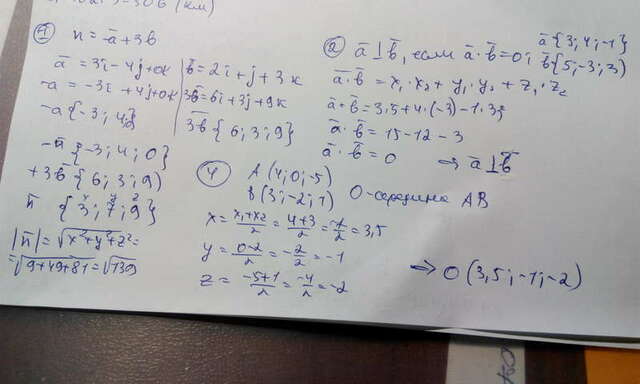 -306 (км)
① n = -a̅ + 3b̅
a̅ = 3i - 4j + 0k
-a = -3i + 4j + 0k
-a {-3; 4;
b̅ = 2i + j + 3k
3b̅ = 6i + 3j + 9k
3b̅ {6; 3; 9}
-n̅ {-3; 4; 0}
+3b̅ {6; 3; 9}
x y z
n̅ {3; 7; 9}
|n̅| = √x²+y²+z² =
= √9+49+81 = √139
② a̅ ⊥ b̅, если a̅ · b̅ = 0; a̅ {3; 4; -1} b̅ {5; -3; 3}
a̅ · b̅ = x₁ · x₂ + y₁ · y₂ + z₁ · z₂
a̅ · b̅ = 3·5 + 4·(-3) - 1·3
a̅ · b̅ = 15 - 12 - 3
a̅ · b̅ = 0 ⇒ a̅ ⊥ b̅
④ A (4; 0; -5)
B (3; -2; 1) O-середина AB
x = x₁+x₂/2 = 4+3/2 = 7/2 = 3,5
y = 0-2/2 = -2/2 = -1
z = -5+1/2 = -4/2 = -2
⇒ O (3,5; -1; -2)